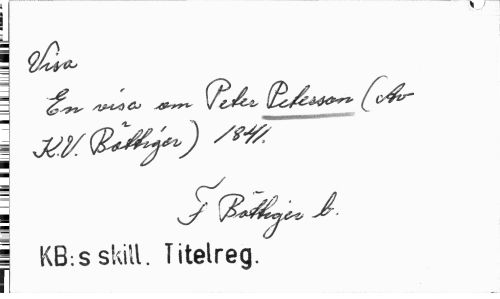 Visa
En visa om Peter Peterson (Av
K.V. Böttiger) 1841.
F Böttiger b.
KB:s skill. Titelreg.